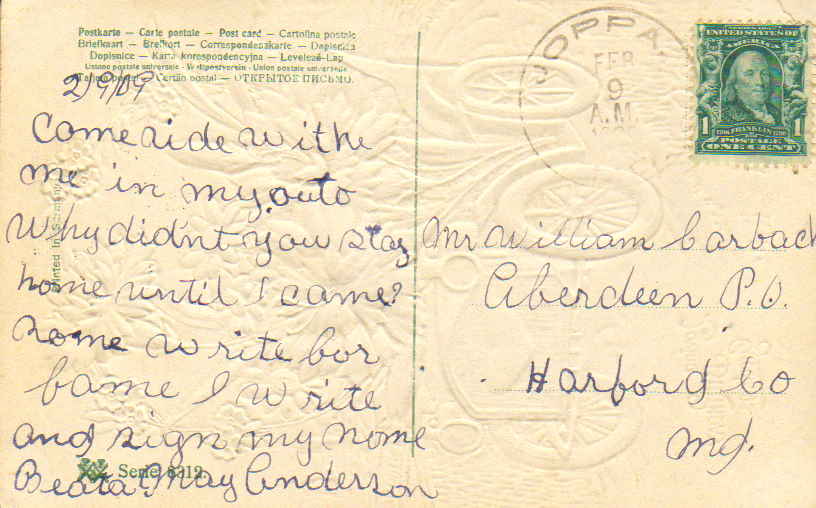 Postkarte – Carte postale – Post card – Cartolina postale
Briefkaart – Brefkort – Correspondenzkarte – Dopisnica
Dopisnice – Karta korespondencyjna – Levelező-Lap
Union postale universelle – Weltpostverein – Union postale universelle
Tarjeta postal – Cartão postal – ОТКРЫТОЕ ПИСЬМО.
2/9/09
Come ride withe
me in my outo
Why didnt you stay
home until I came?
some write for
fame I write
and sign my nome
Beata May Anderson
Printed in Germany
Serie 6312
JOPPA,
FEB
9
A.M.
UNITED STATES OF
AMERICA
1
FRANKLIN
1
POSTAGE
ONE CENT
Mr William Carback
Aberdeen P.O.
Harford Co
Md.